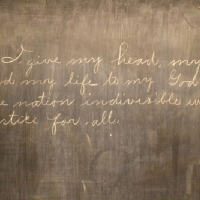 I give my head, my
d my life to my God
e nation indivisible w
stice for all.